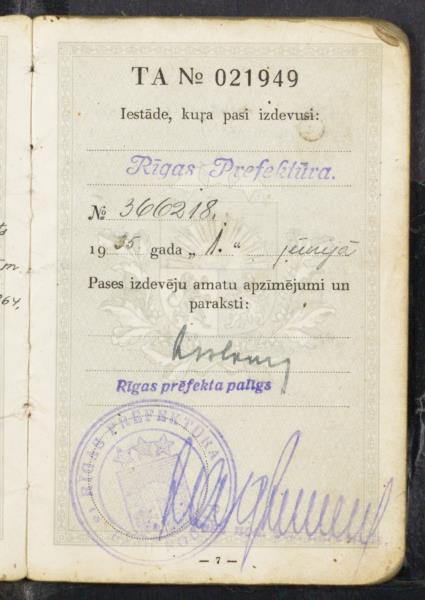 TA № 021949
Iestāde, kuŗa pasi izdevusi:
Rīgas Prefektūra.
№ 366218.
1935 gada „1.“ jūnijā
Pases izdevēju amatu apzīmējumi un
paraksti:
Rīgas prēfekta palīgs
RĪGAS PREFEKTŪRA
— 7 —